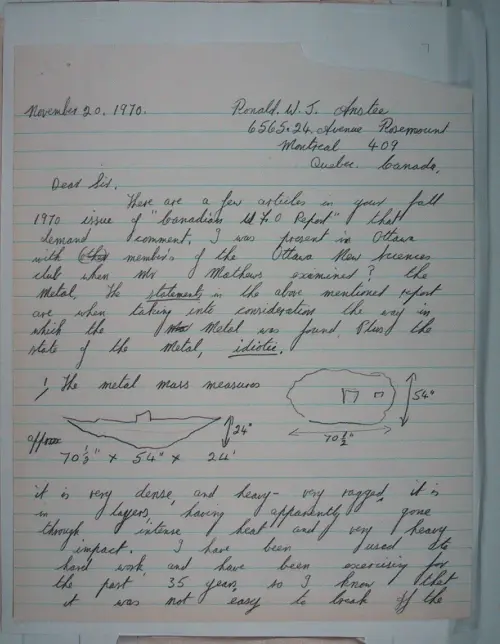 November 20, 1970.
Ronald. W. J. Anstee
6565.24. Avenue Rosemount
Montreal 409
Quebec. Canada,
Dear Sir.
There are a few articles in your fall
1970 issue of "Canadian U.F.O Report" that
demand comment, I was present in Ottawa
with members of the Ottawa New Sciences
club when Mr Mathews examined? the
Metal, The statements in the above mentioned report
are when taking into consideration the way in
which the Metal was found. Plus the
state of the Metal, idiotic.
1/ The metal mass measures
24"
54"
70 1/2"
approx
70 1/2" x 54" x 24'
it is very dense, and heavy - very ragged, it is
in layers, having apparently gone
through intense heat and very heavy
impact. I have been used to
hard work and have been exercising for
the past 35 years, so I know that
it was not easy to break off the